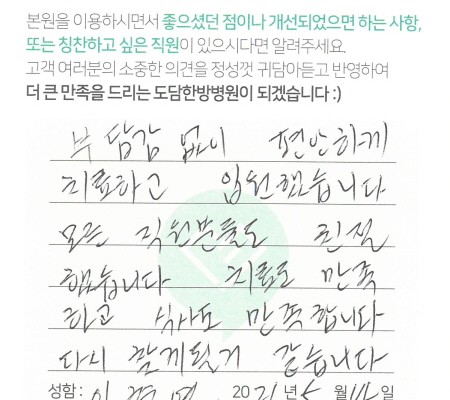 본원을 이용하시면서 좋으셨던 점이나 개선되었으면 하는 사항,
또는 칭찬하고 싶은 직원이 있으시다면 알려주세요.
고객 여러분의 소중한 의견을 정성껏 귀담아듣고 반영하여
더 큰 만족을 드리는 도담한방병원이 되겠습니다 :)
부담감 없이 편안하게
치료하고 입원했습니다
모든 직원분들도 친절
했습니다 치료도 만족
하고 식사도 만족합니다
다시 찾게될거 같습니다
성함 : 이 2021년 5월 12일